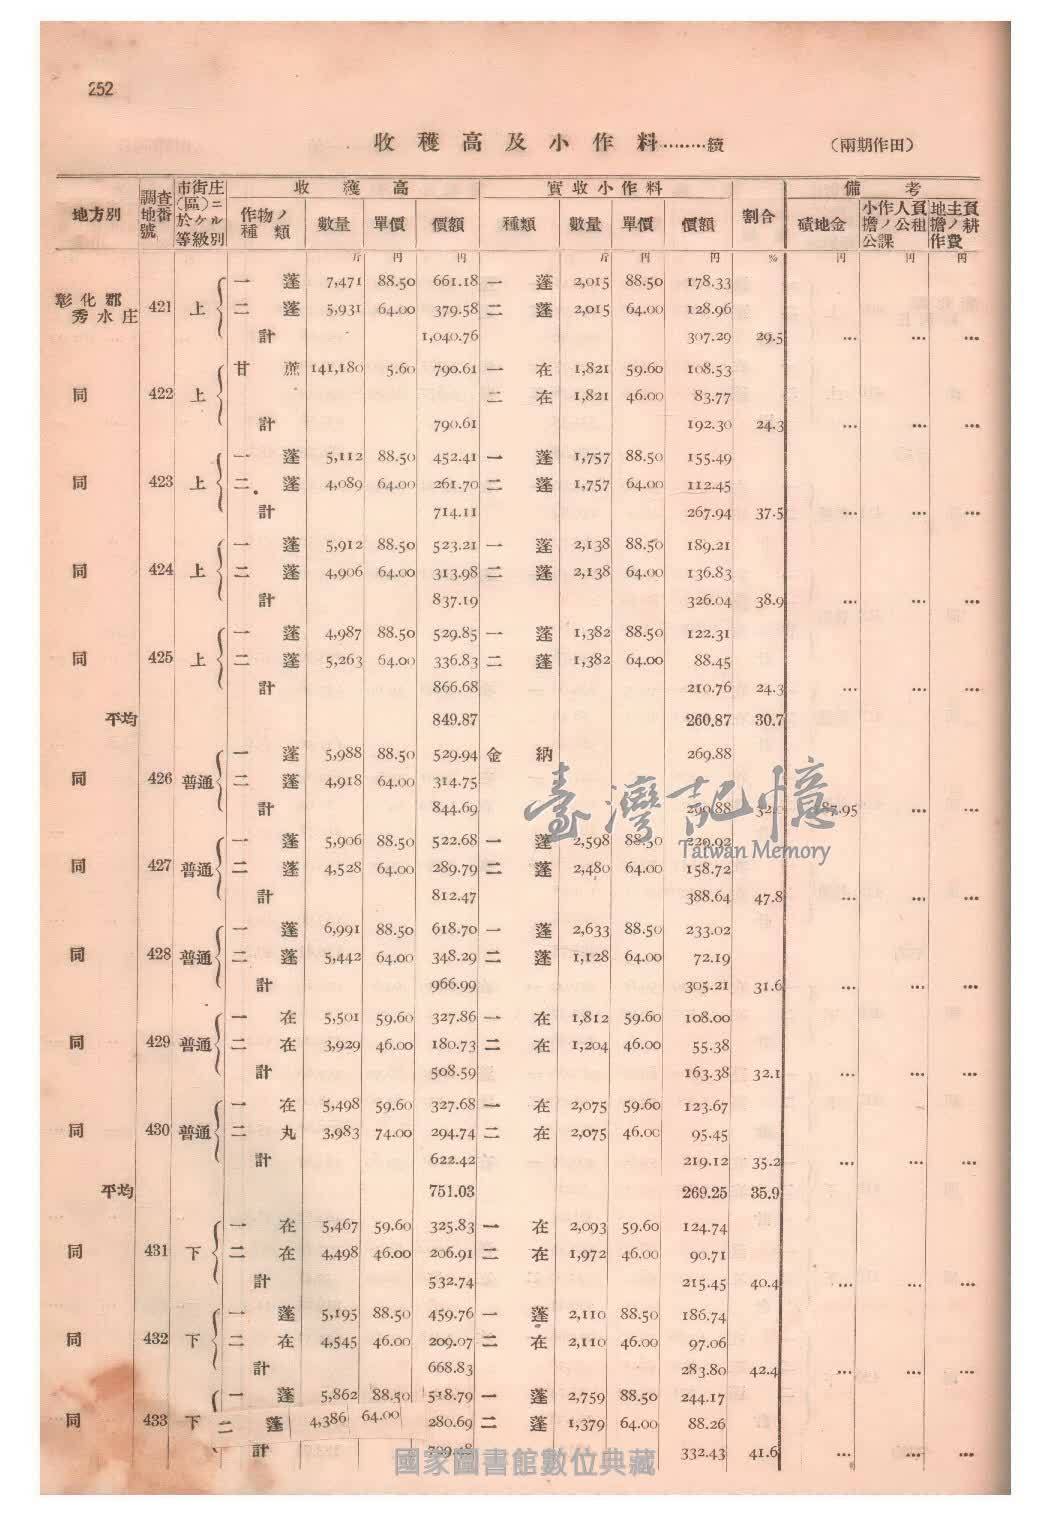 252
收穫高及小作料………續 （兩期作田）
地方別 調查地番號 市街庄（區）ニ於ケル等級別 收穫高 實收小作料 割合 備考
作物ノ種類 數量 單價 價額 種類 數量 單價 價額 磧地金 小作人負擔ノ公租公課 地主負擔ノ耕作費
斤 円 円 斤 円 円 % 円 円 円
一 蓬 7,471 88.50 661.18 一 蓬 2,015 88.50 178.33
彰化郡秀水庄 421 上 二 蓬 5,931 64.00 379.58 二 蓬 2,015 64.00 128.96
計 1,040.76 307.29 29.5 … … …
甘蔗 141,180 5.60 790.61 一 在 1,821 59.60 108.53
同 422 上 二 在 1,821 46.00 83.77
計 790.61 192.30 24.3 … … …
一 蓬 5,112 88.50 452.41 一 蓬 1,757 88.50 155.49
同 423 上 二 蓬 4,089 64.00 261.70 二 蓬 1,757 64.00 112.45
計 714.11 267.94 37.5 … … …
一 蓬 5,912 88.50 523.21 一 蓬 2,138 88.50 189.21
同 424 上 二 蓬 4,906 64.00 313.98 二 蓬 2,138 64.00 136.83
計 837.19 326.04 38.9 … … …
一 蓬 4,987 88.50 529.85 一 蓬 1,382 88.50 122.31
同 425 上 二 蓬 5,263 64.00 336.83 二 蓬 1,382 64.00 88.45
計 866.68 210.76 24.3 … … …
平均 849.87 260.87 30.7
一 蓬 5,988 88.50 529.94 金納 269.88
同 426 普通 二 蓬 4,918 64.00 314.75
計 844.69 … …
臺灣記憶
Taiwan Memory
一 蓬 5,906 88.50 522.68 一 蓬 2,598 88.50 229.92
同 427 普通 二 蓬 4,528 64.00 289.79 二 蓬 2,480 64.00 158.72
計 812.47 388.64 47.8 … … …
一 蓬 6,991 88.50 618.70 一 蓬 2,633 88.50 233.02
同 428 普通 二 蓬 5,442 64.00 348.29 二 蓬 1,128 64.00 72.19
計 966.99 305.21 31.6 … … …
一 在 5,501 59.60 327.86 一 在 1,812 59.60 108.00
同 429 普通 二 在 3,929 46.00 180.73 二 在 1,204 46.00 55.38
計 508.59 163.38 32.1 … … …
一 在 5,498 59.60 327.68 一 在 2,075 59.60 123.67
同 430 普通 二 丸 3,983 74.00 294.74 二 在 2,075 46.00 95.45
計 622.42 219.12 35.2 … … …
平均 751.03 269.25 35.9
一 在 5,467 59.60 325.83 一 在 2,093 59.60 124.74
同 431 下 二 在 4,498 46.00 206.91 二 在 1,972 46.00 90.71
計 532.74 215.45 40.4 … … …
一 蓬 5,195 88.50 459.76 一 蓬 2,110 88.50 186.74
同 432 下 二 在 4,545 46.00 209.07 二 在 2,110 46.00 97.06
計 668.83 283.80 42.4 … … …
一 蓬 5,862 88.50 518.79 一 蓬 2,759 88.50 244.17
同 433 下 二 蓬 4,386 64.00 280.69 二 蓬 1,379 64.00 88.26
計 332.43 41.6 … … …
國家圖書館數位典藏